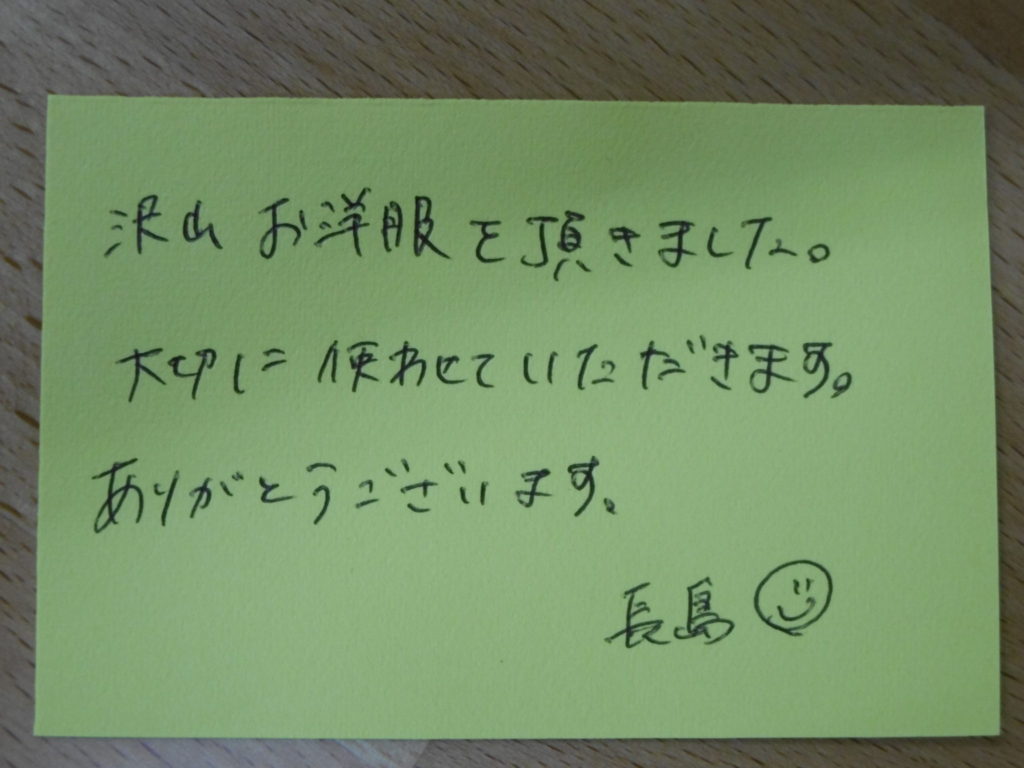 沢山 お洋服を頂きました。
大切に 使わせていただきます。
ありがとうございます。
長島